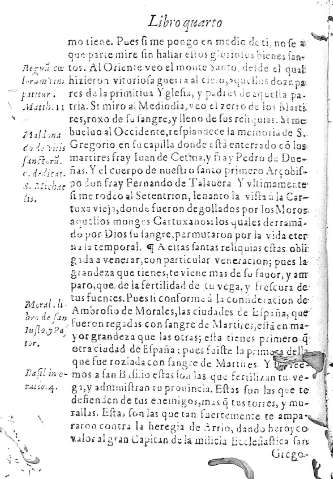 Libro quarto
mo tiene. Pues si me pongo en medio de ti, no se a
que parte mire sin hallar estos gloriosos bienes san-
tos. Al Oriente veo el monte santo, desde el qual
hizieron vitoriosa guerra al cielo, aquellos doze pa
res de la primitiua Yglesia, y padres de aquesta pa
tria. Si miro al Mediodia, veo el cerro de los Marti
res, roxo de su sangre, y lleno de sus reliquias. Si me
bueluo al Occidente, resplandece la memoria de S.
Gregorio en su capilla donde está enterrado cõ los
martires fray Iuan de Cetina, y fray Pedro de Due-
ñas. Y el cuerpo de nuestro santo primero Arçobis-
po don fray Fernando de Talauera Y vltimamente
si me rodeo al Setentrion, leuanto la vista a la Car-
tuxa vieja, donde fueron degollados por los Moros
aquellos monges Cartuxanos los quales derramã-
do por Dios su sangre, permutaron por la vida eter
na la temporal. ¶ A estas santas reliquias estás obli
gada a venerar, con particular veneracion; pues la
grandeza que tienes, te viene mas de su fauor, y am
paro, que de la fertilidad de tu vega, y frescura de
tus fuentes. Pues si conforme a la consideracion de
Ambrosio de Morales, las ciudades de España, que
fueron regadas con sangre de Martires, està en ma-
yor grandeza que las otras; esta tienes primero q̃
otra ciudad de España; pues fuiste la primera della
que fue roziada con sangre de Martires. Y si cree
mos a san Basilio estas son las que fertilizan tu ve-
ga, y administran tu prouincia. Estas son las que te
defienden de tus enemigos, mas q̃ tus torres, y mu-
rallas. Estas son las que tan fuertemente te ampa-
raron contra la heregia de Arrio, dando heroyco
valor al gran Capitan de la milicia Ecclesiastica san
Grego-
Regnũ cæ
lorum vim
patitur.
Matth. 11
Moral. li
bro de san
Iusto, y Pa
stor.